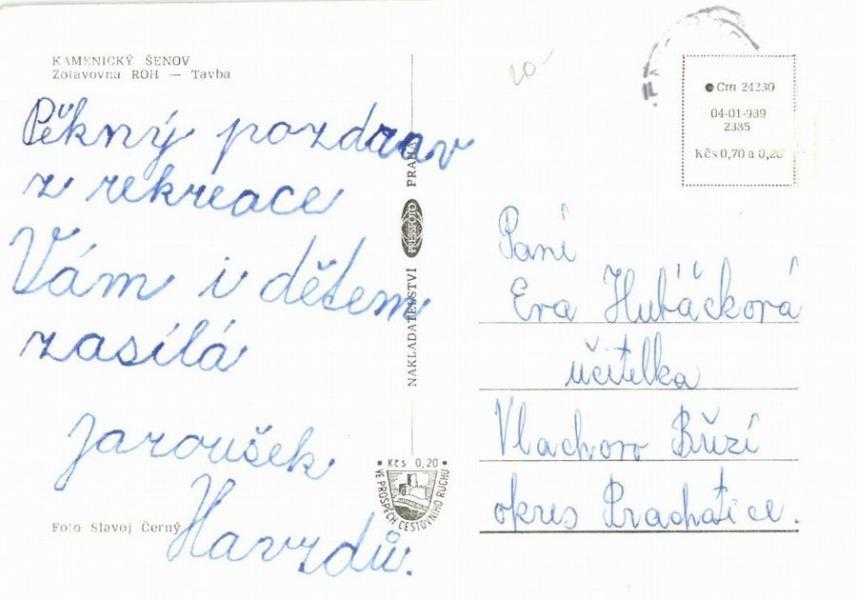 KAMENICKÝ ŠENOV
Zotavovna ROH — Tavba
Pěkný pozdrav
z rekreace
Vám i dětem
zasílá
Jaroušek
Havrdů.
Foto Slavoj Černý
NAKLADATELSTVÍ PRESSFOTO PRAHA
Kčs 0,20
VE PROSPĚCH CESTOVNÍHO RUCHU
20-
Ctn 24230
04-01-989
2385
Kčs 0,70 a 0,20
Paní
Eva Hubáčková
učitelka
Vlachovo Březí
okres Prachatice.